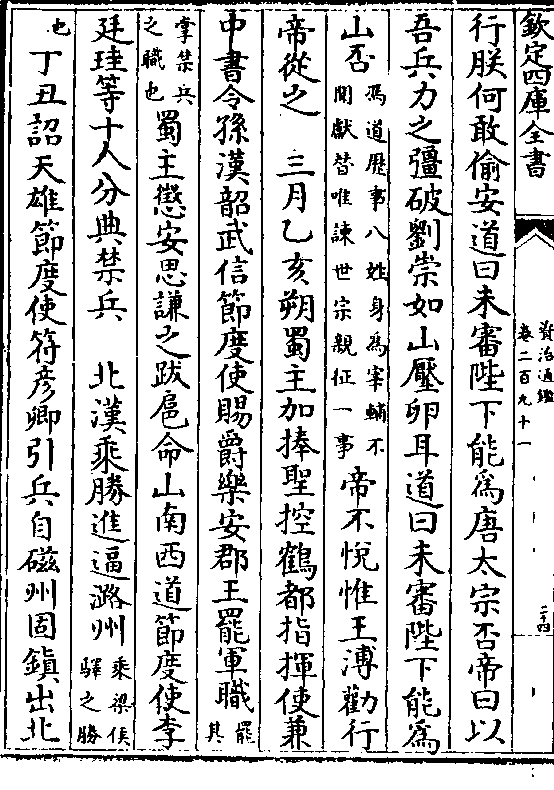 欽定四庫全書
資治通鑑
卷二百九十一
二十四
行朕何敢偷安道曰未審陛下能為唐太宗否帝曰以
吾兵力之彊破劉崇如山壓卵耳道曰未審陛下能為
山否馮道歴事八姓身為宰輔不
聞獻替唯諫世宗親征一事帝不悅惟王溥勸行
帝從之　三月乙亥朔蜀主加捧聖控鶴都指揮使兼
中書令孫漢韶武信節度使賜爵樂安郡王罷軍職罷
其
掌禁兵
之職也蜀主懲安思謙之跋扈命山南西道節度使李
廷珪等十人分典禁兵　北漢乘勝進逼潞州乘梁侯
驛之勝
也丁丑詔天雄節度使符彦卿引兵自磁州固鎮出北